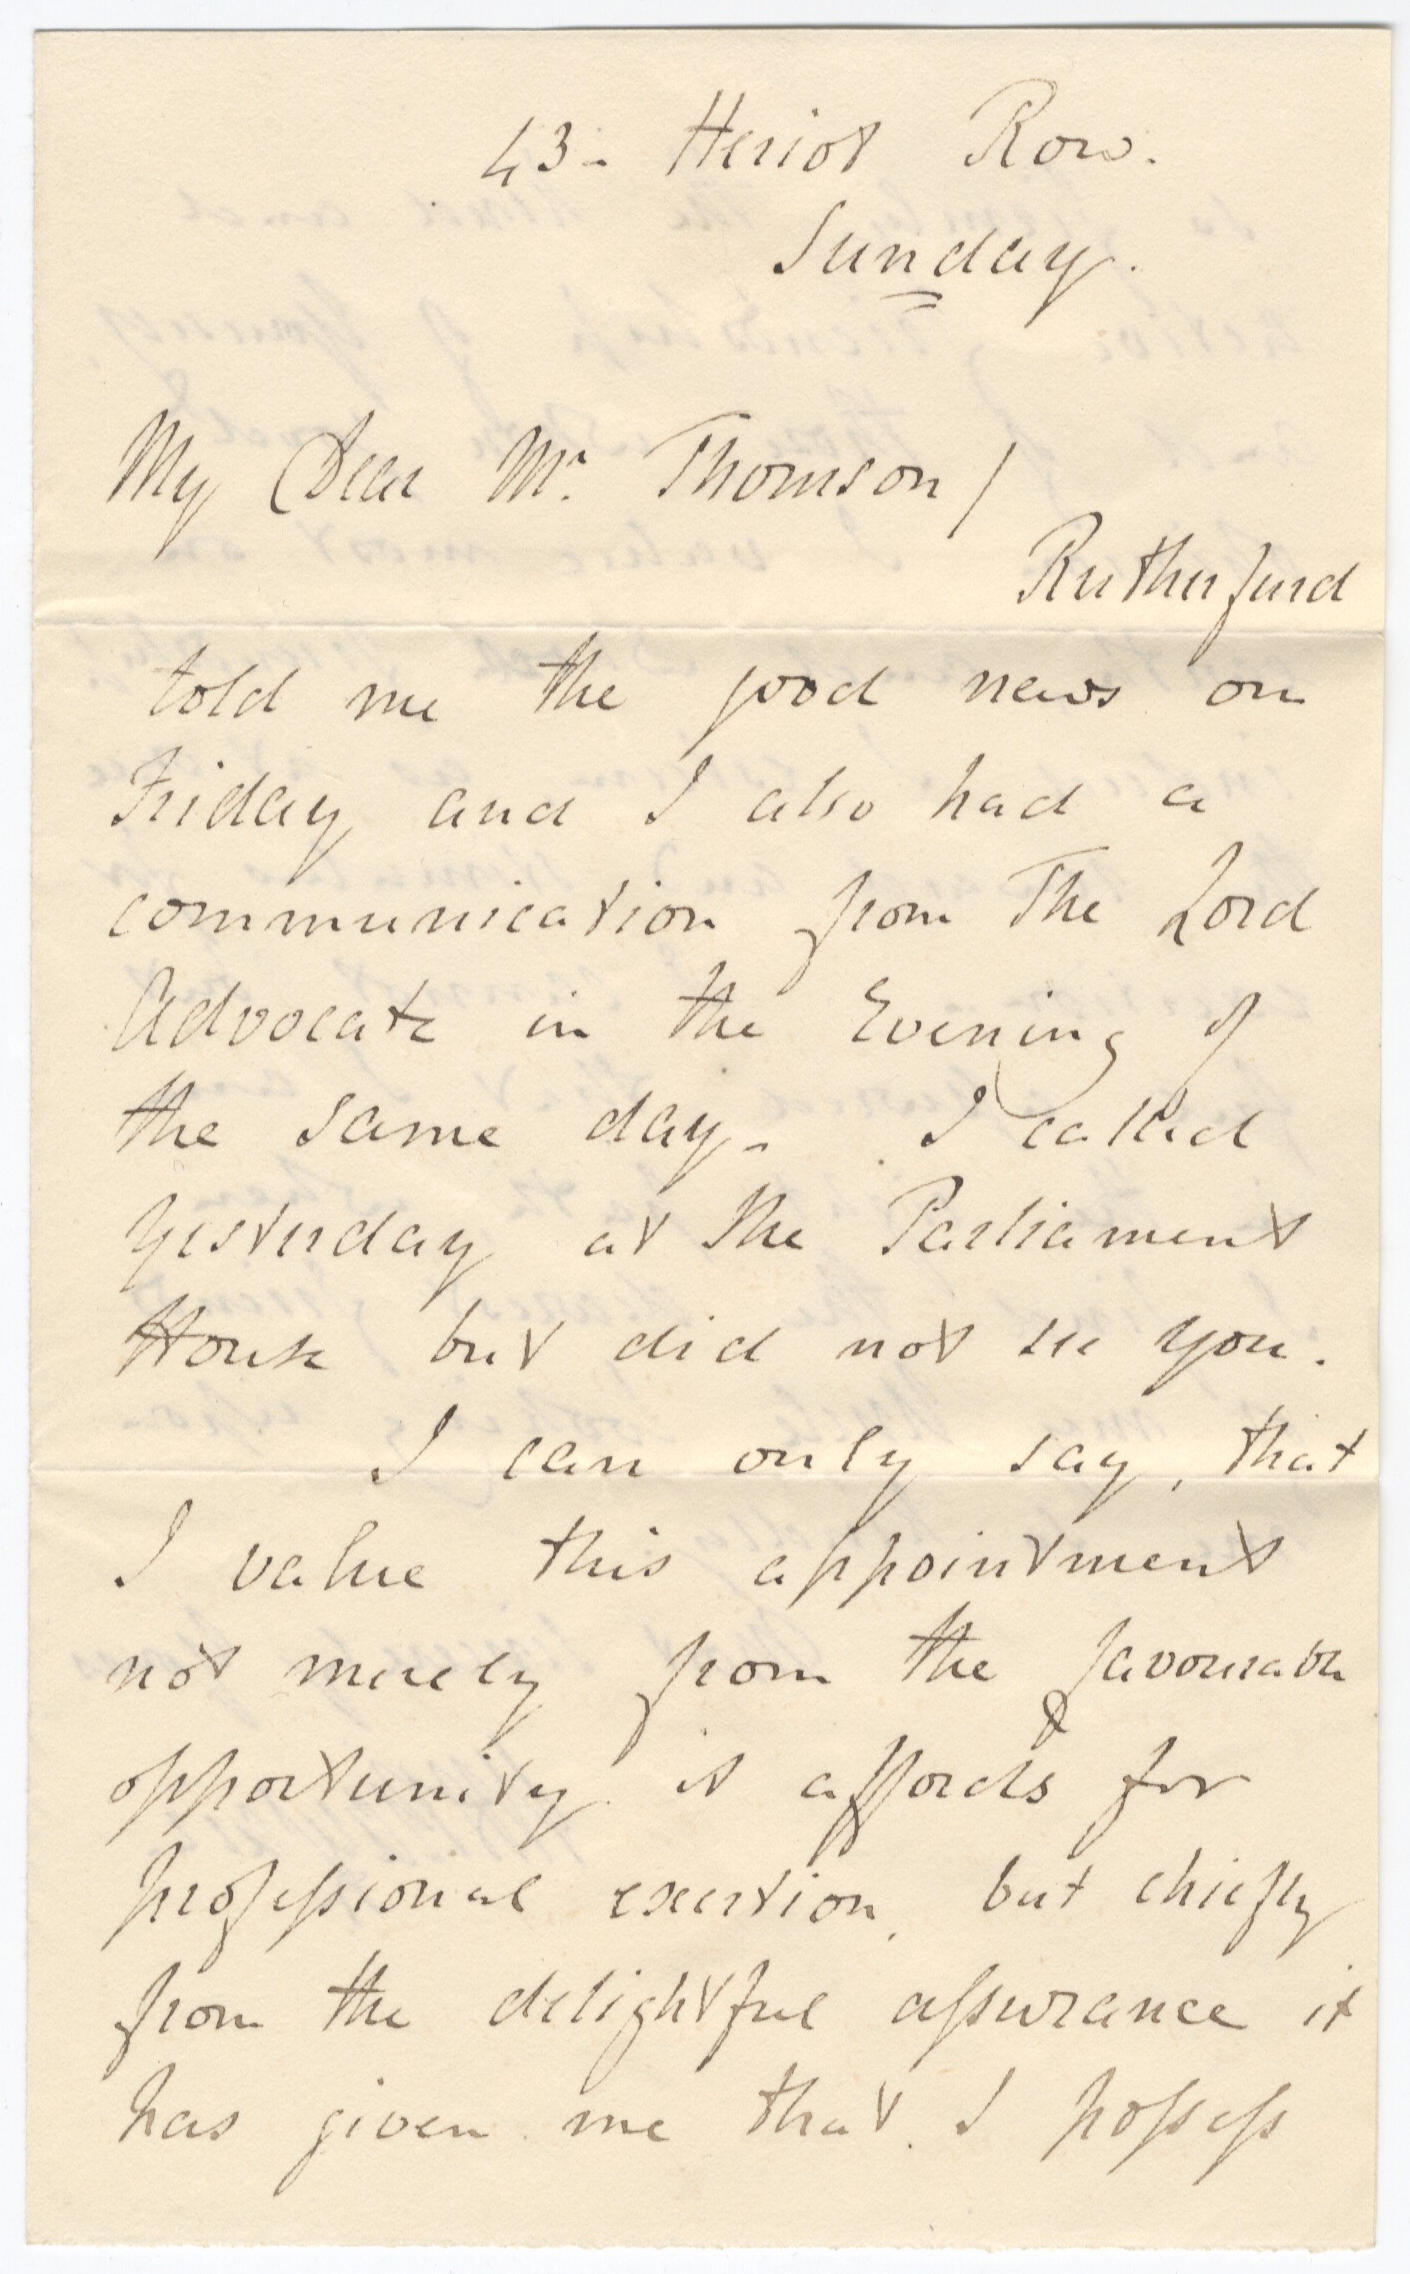 43- Heriot Row.
Sunday.
My Dear Mr. Thomson/
Rutherfurd
told me the good news on
Friday and I also had a
communication from The Lord
Advocate in the Evening of
the same day- I called
yesterday at The Parliament
House but did not see you.
I can only say, that
I value this appointment
not merely from the favourable
opportunity it affords for
professional exertion, but chiefly
from the delightful assurance it
has given me that I possess